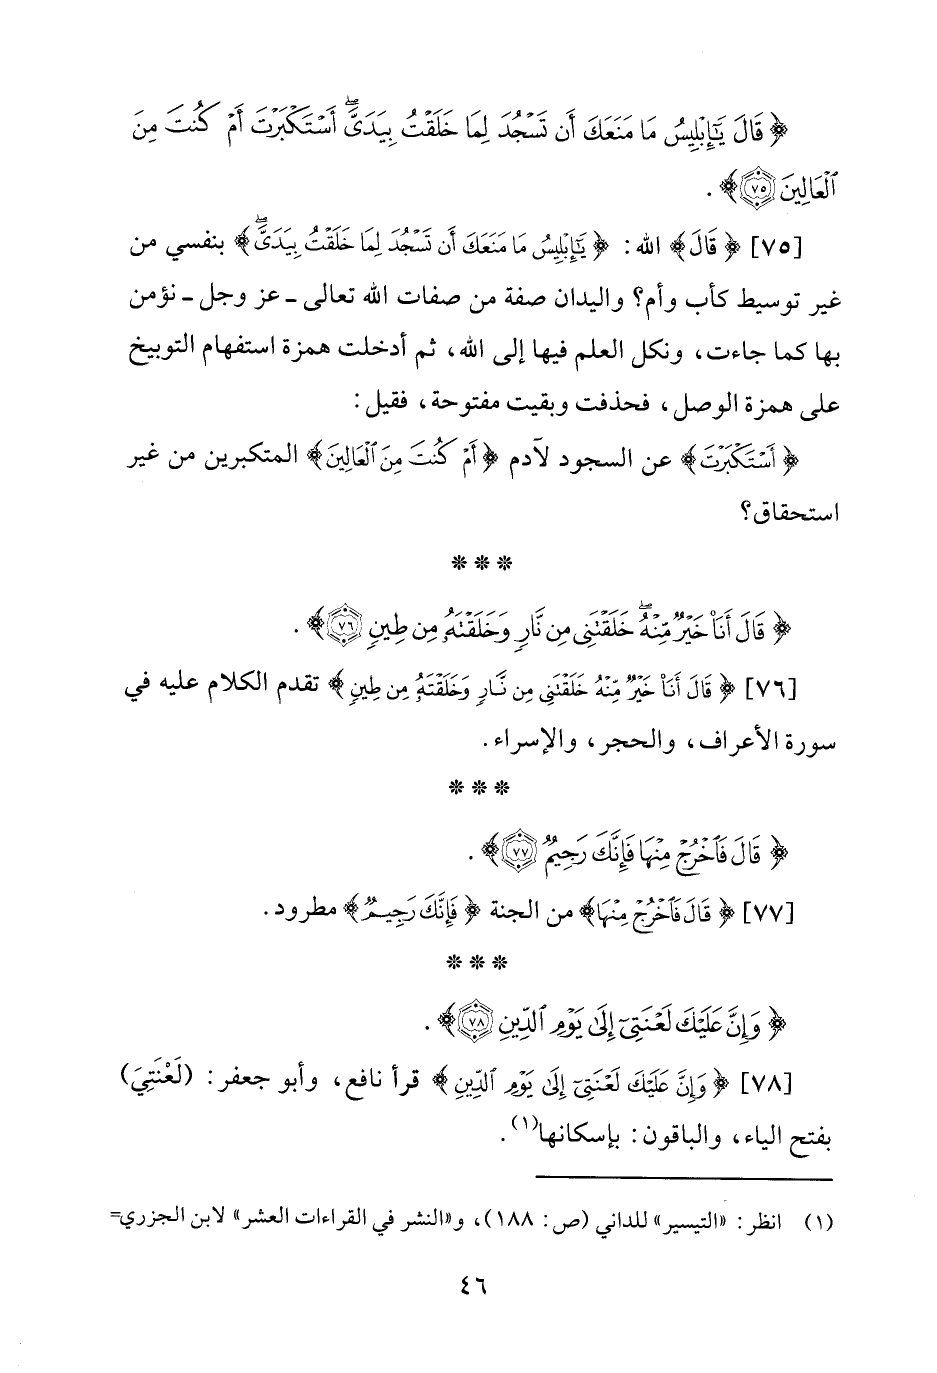 ﴿ قَالَ يَٰٓإِبْلِيسُ مَا مَنَعَكَ أَن تَسْجُدَ لِمَا خَلَقْتُ بِيَدَىَّ ۖ أَسْتَكْبَرْتَ أَمْ كُنتَ مِنَ
ٱلْعَالِينَ ٧٥ ﴾ .
[٧٥] ﴿ قَالَ ﴾ الله : ﴿ يَٰٓإِبْلِيسُ مَا مَنَعَكَ أَن تَسْجُدَ لِمَا خَلَقْتُ بِيَدَىَّ ۖ ﴾ بنفسي من
غير توسيط كأب وأم؟ واليدان صفة من صفات الله تعالى ـ عز وجل ـ نؤمن
بها كما جاءت، ونكل العلم فيها إلى الله، ثم أدخلت همزة استفهام التوبيخ
على همزة الوصل، فحذفت وبقيت مفتوحة، فقيل:
﴿ أَسْتَكْبَرْتَ ﴾ عن السجود لآدم ﴿ أَمْ كُنتَ مِنَ ٱلْعَالِينَ ﴾ المتكبرين من غير
استحقاق؟
* * *
﴿ قَالَ أَنَا۠ خَيْرٌ مِّنْهُ ۖ خَلَقْتَنِى مِن نَّارٍ وَخَلَقْتَهُۥ مِن طِينٍ ٧٦ ﴾ .
[٧٦] ﴿ قَالَ أَنَا۠ خَيْرٌ مِّنْهُ خَلَقْتَنِى مِن نَّارٍ وَخَلَقْتَهُۥ مِن طِينٍ ﴾ تقدم الكلام عليه في
سورة الأعراف، والحجر، والإسراء.
* * *
﴿ قَالَ فَٱخْرُجْ مِنْهَا فَإِنَّكَ رَجِيمٌ ٧٧ ﴾ .
[٧٧] ﴿ قَالَ فَٱخْرُجْ مِنْهَا ﴾ من الجنة ﴿ فَإِنَّكَ رَجِيمٌ ﴾ مطرود.
* * *
﴿ وَإِنَّ عَلَيْكَ لَعْنَتِىٓ إِلَىٰ يَوْمِ ٱلدِّينِ ٧٨ ﴾ .
[٧٨] ﴿ وَإِنَّ عَلَيْكَ لَعْنَتِىٓ إِلَىٰ يَوْمِ ٱلدِّينِ ﴾ قرأ نافع، وأبو جعفر: (لَعْنَتِيَ)
بفتح الياء، والباقون: بإسكانها(١).
(١) انظر: «التيسير» للداني (ص: ١٨٨)، و«النشر في القراءات العشر» لابن الجزري=
٤٦